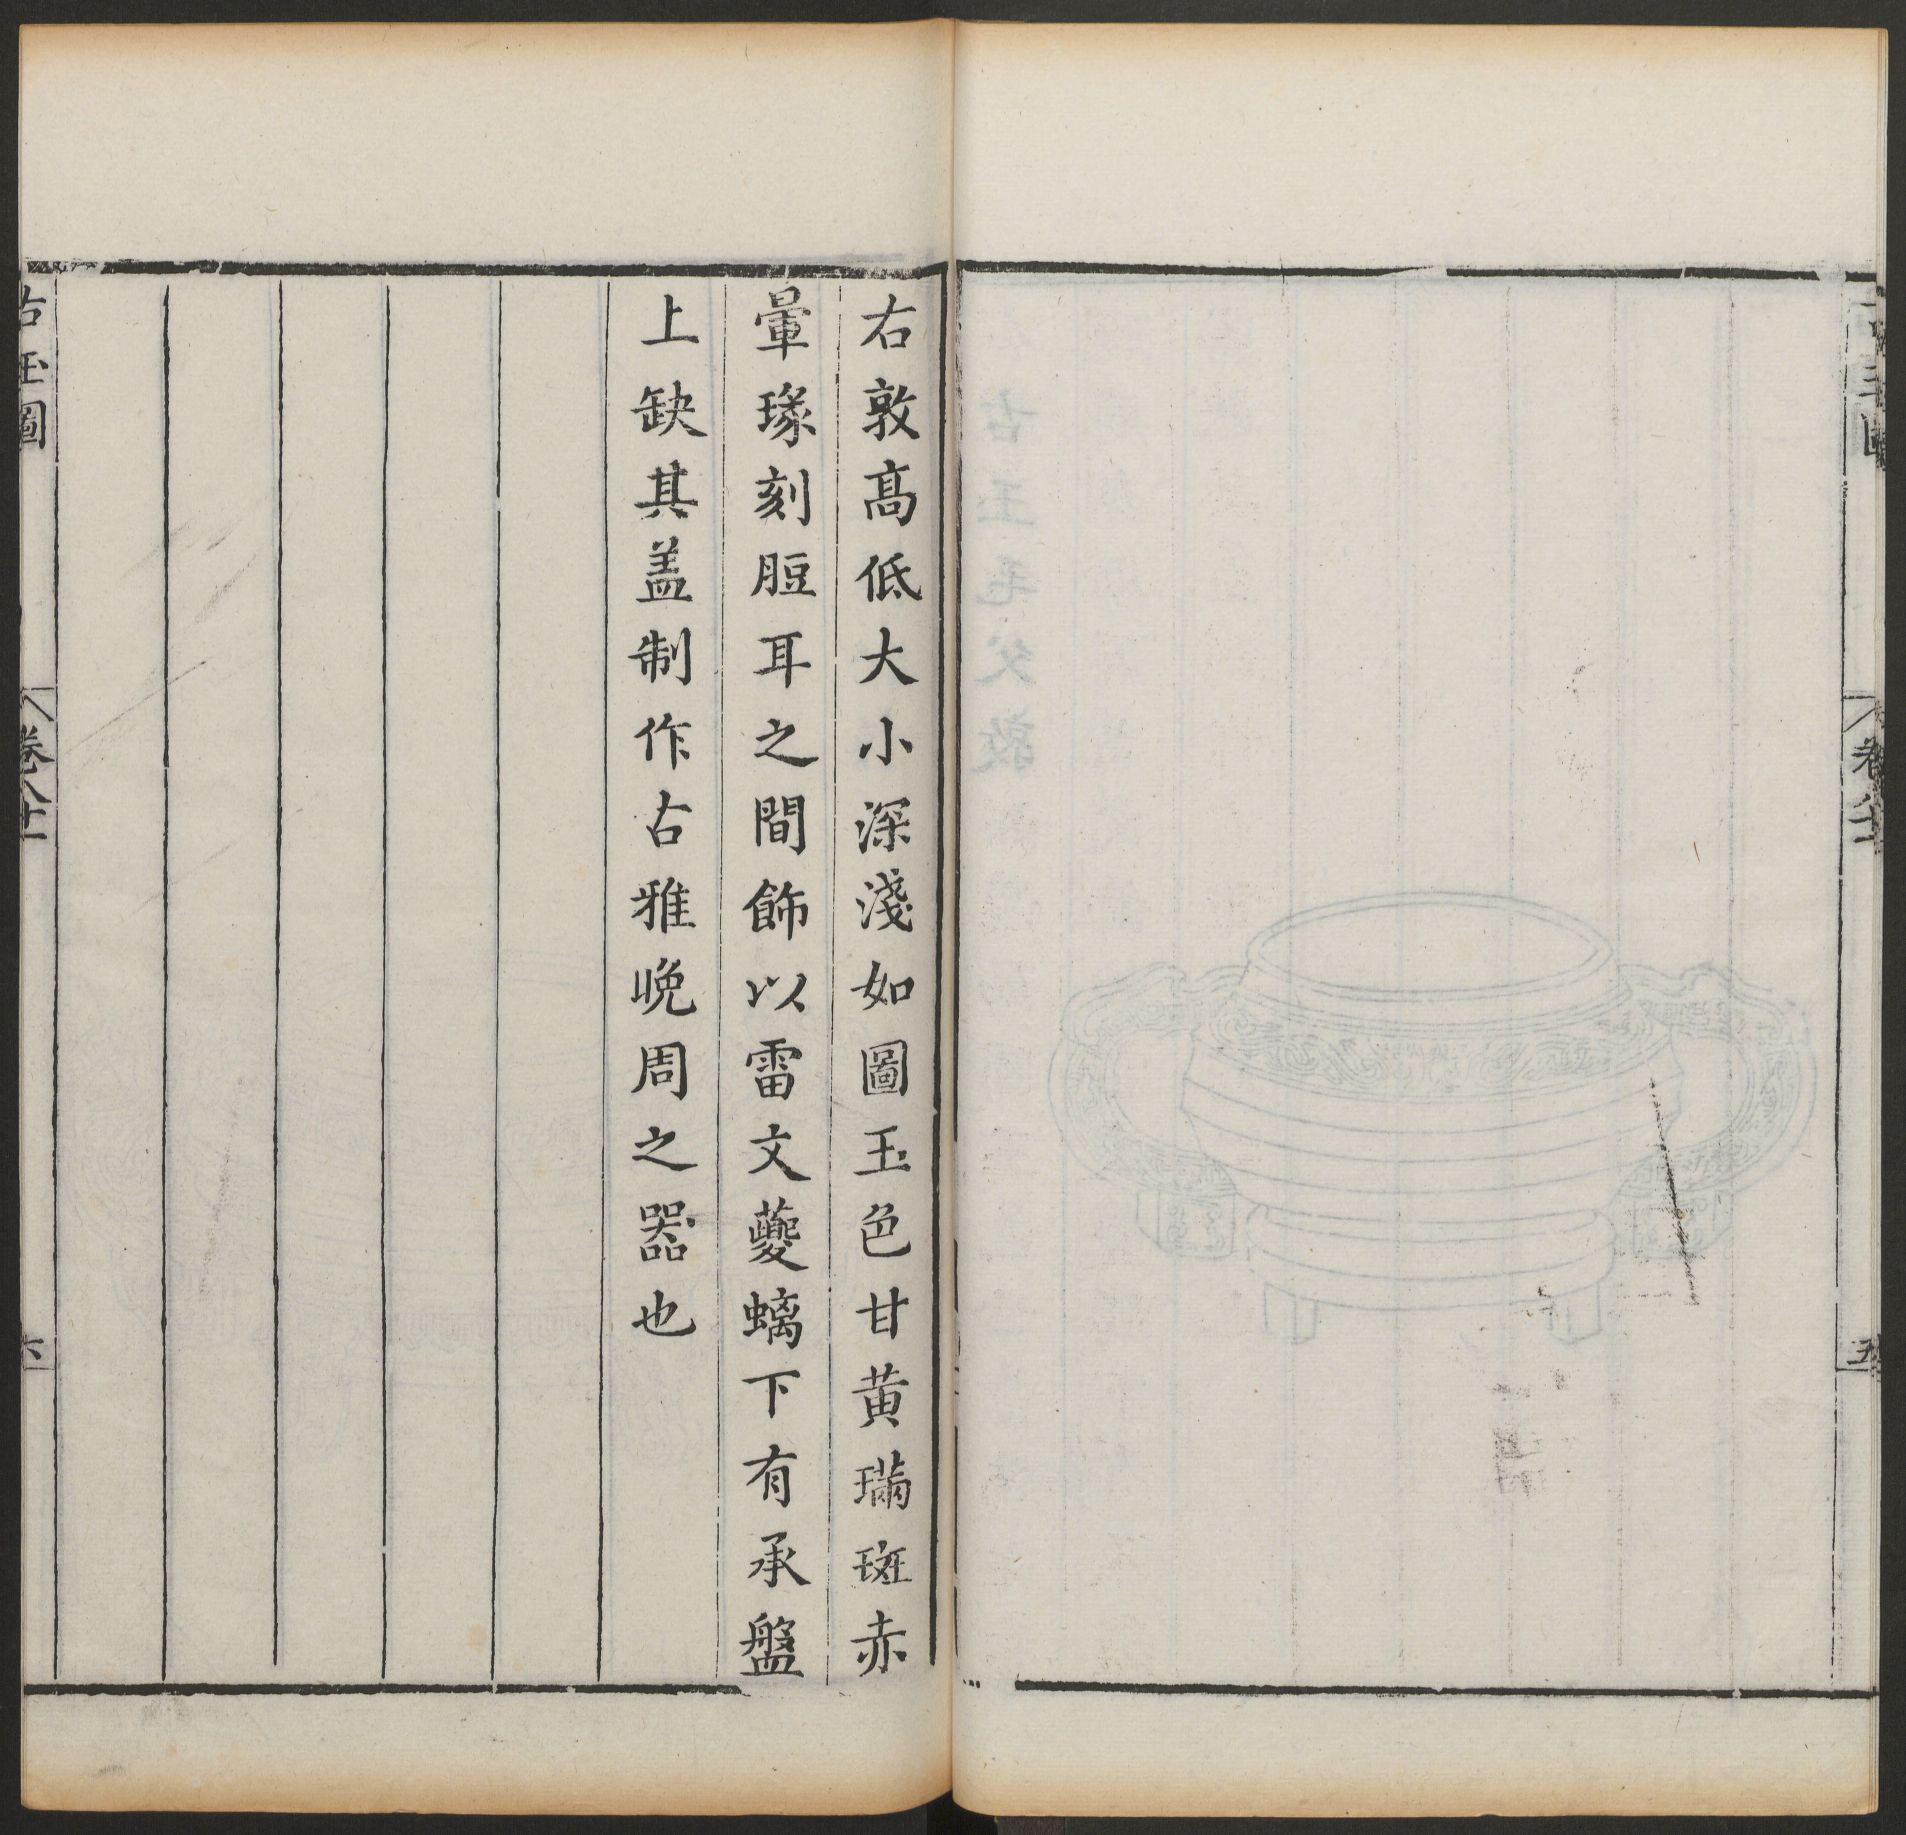 右敦髙低大小深淺如圖玉色甘黄璊斑赤
暈瑑刻脰耳之間飾以雷文夔螭下有承盤
上缺其盖制作古雅晚周之器也
古玉圖
卷八十一
六
古玉圖
卷八十一
五